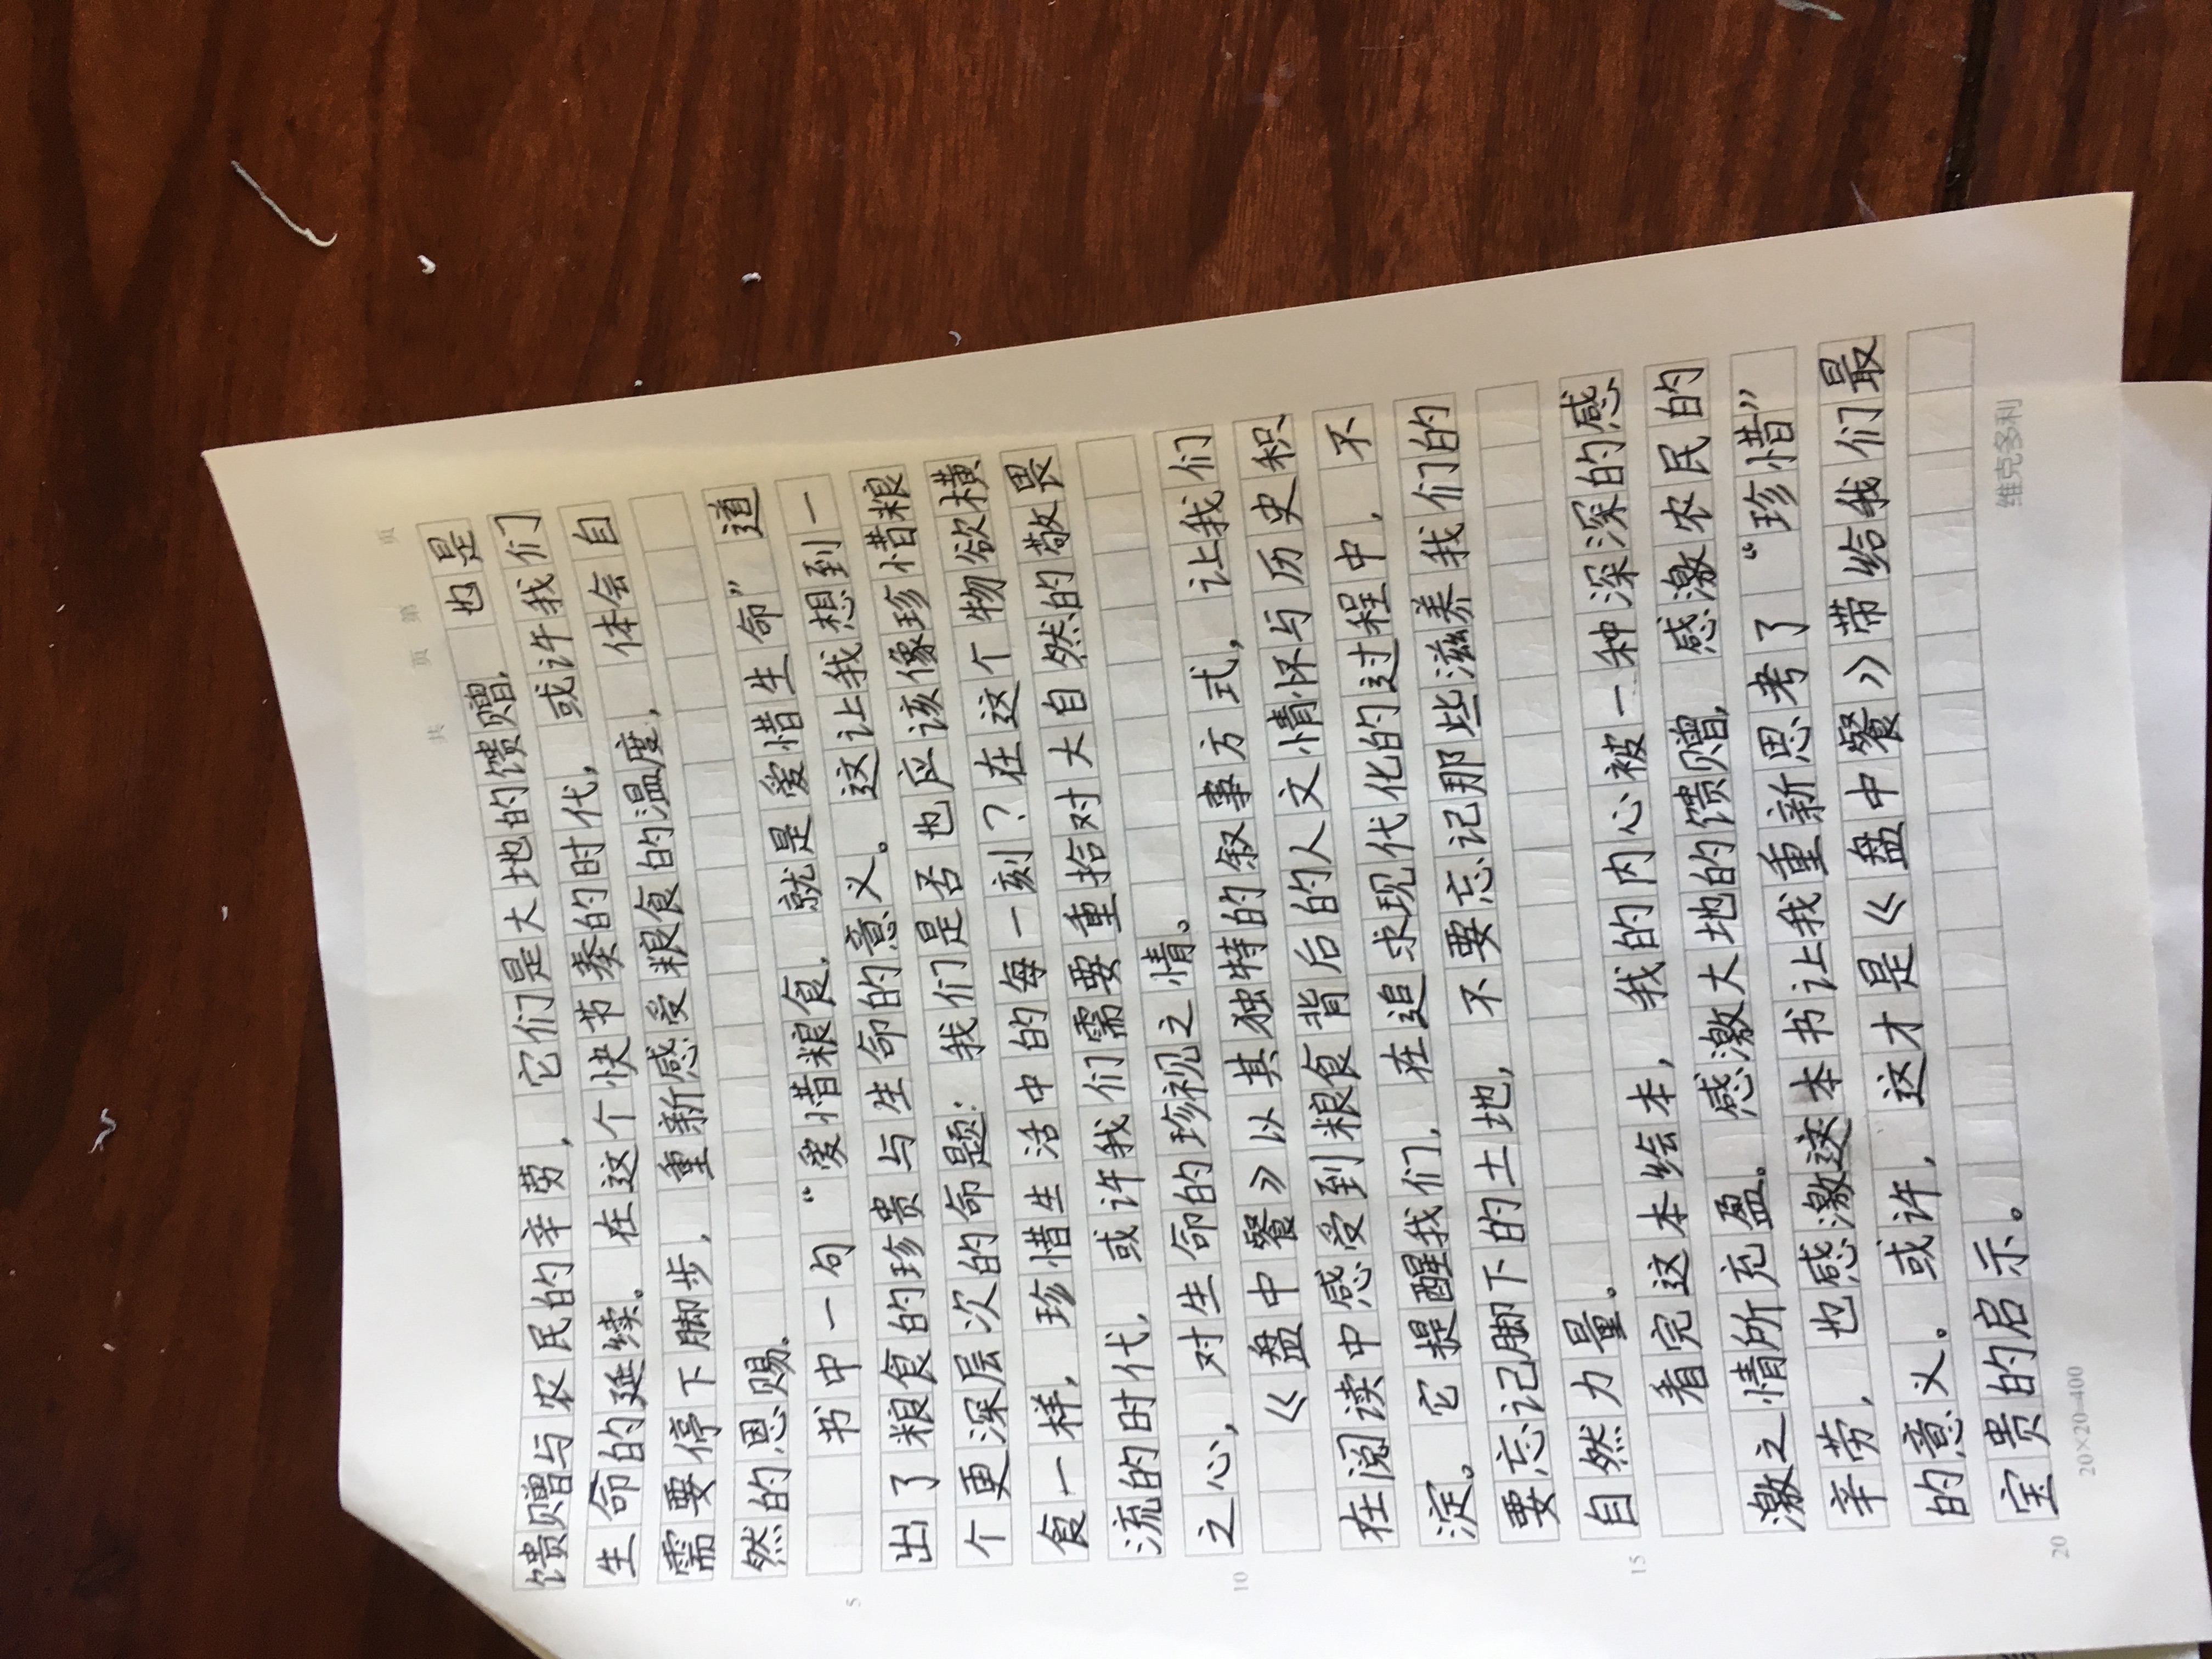 共 页 第 页
馈赠与农民的辛劳，它们是大地的馈赠，也是
生命的延续。在这个快节奏的时代，或许我们
需要停下脚步，重新感受粮食的温度，体会自
然的恩赐。
书中一句“爱惜粮食，就是爱惜生命”道
出了粮食的珍贵与生命的意义。这让我想到一
个更深层次的命题：我们是否也应该像珍惜粮
食一样，珍惜生活中的每一刻？在这个物欲横
流的时代，或许我们需要重拾对大自然的敬畏
之心，对生命的珍视之情。
《盘中餐》以其独特的叙事方式，让我们
在阅读中感受到粮食背后的人文情怀与历史积
淀。它提醒我们，在追求现代化的过程中，不
要忘记脚下的土地，不要忘记那些滋养我们的
自然力量。
看完这本绘本，我的内心被一种深深的感
激之情所充盈。感激大地的馈赠，感激农民的
辛劳，也感激这本书让我重新思考了“珍惜”
的意义。或许，这才是《盘中餐》带给我们最
宝贵的启示。
5
10
15
20
20×20=400
维克多利